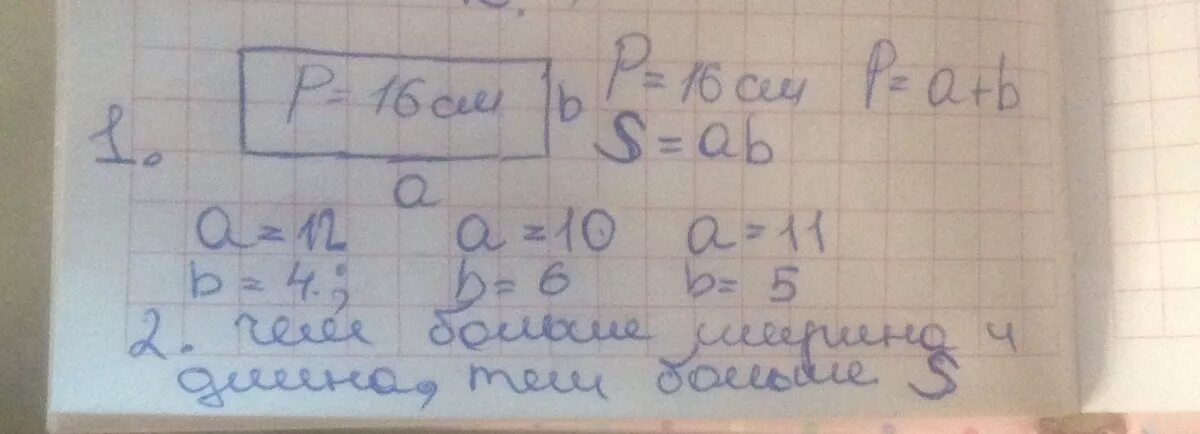 P = 16 см b P = 16 см P = a + b
1. S = ab
a
a = 12 a = 10 a = 11
b = 4.; b = 6 b = 5
2. чем больше ширина и
длина, тем больше S